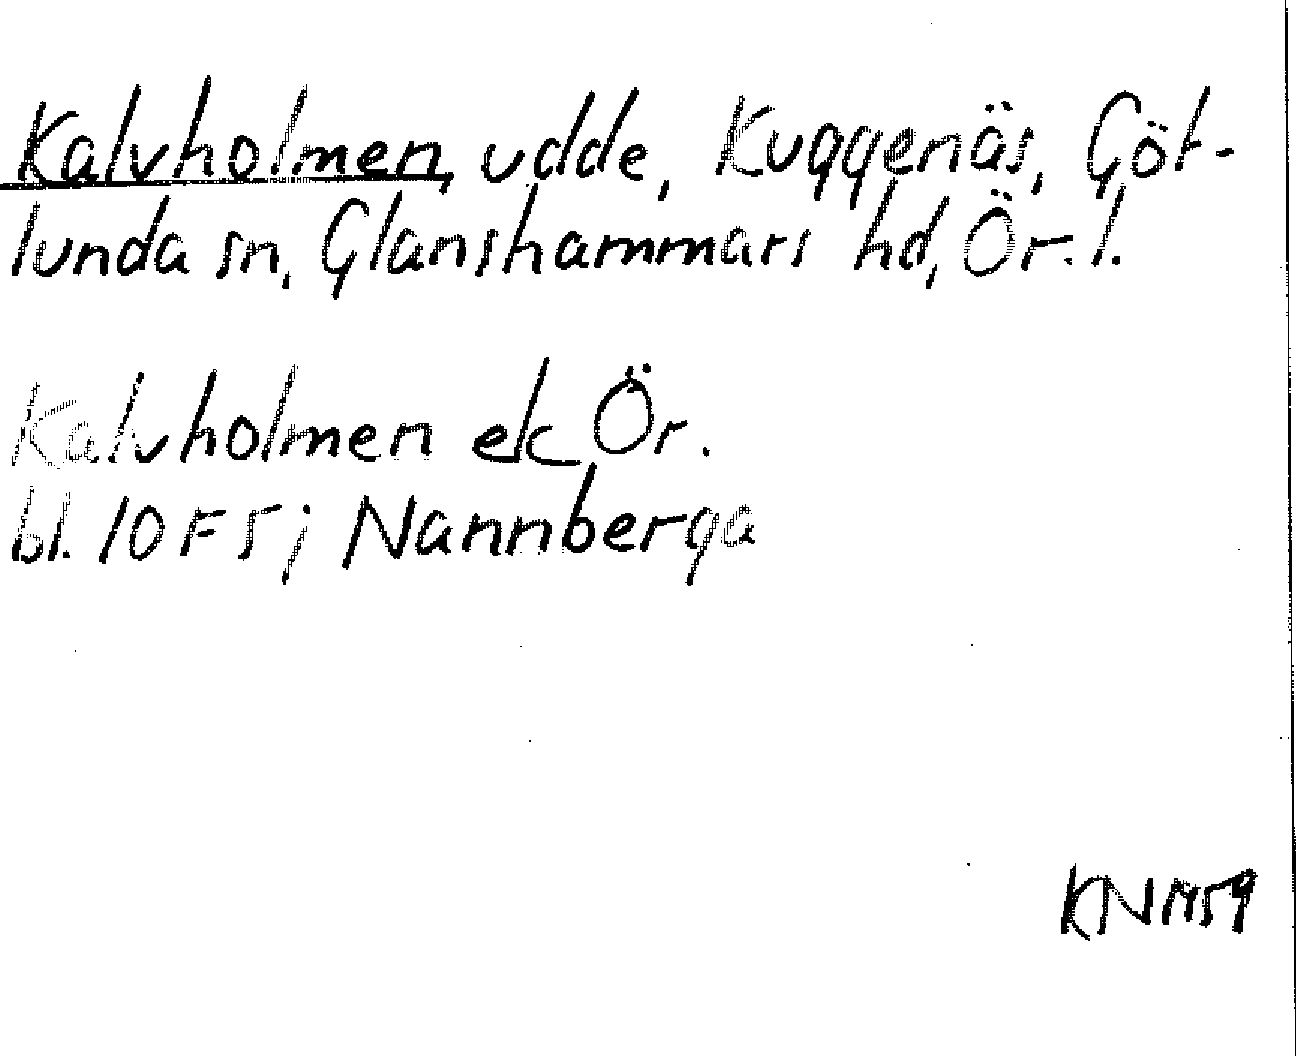 Kalvholmen, udde, Kuggenäs, Göt-
lunda sn, Glanshammars hd, Ör. l.
Kalvholmen ek Ör.
bl. 10 F 5 j Nannberga
KN 1959